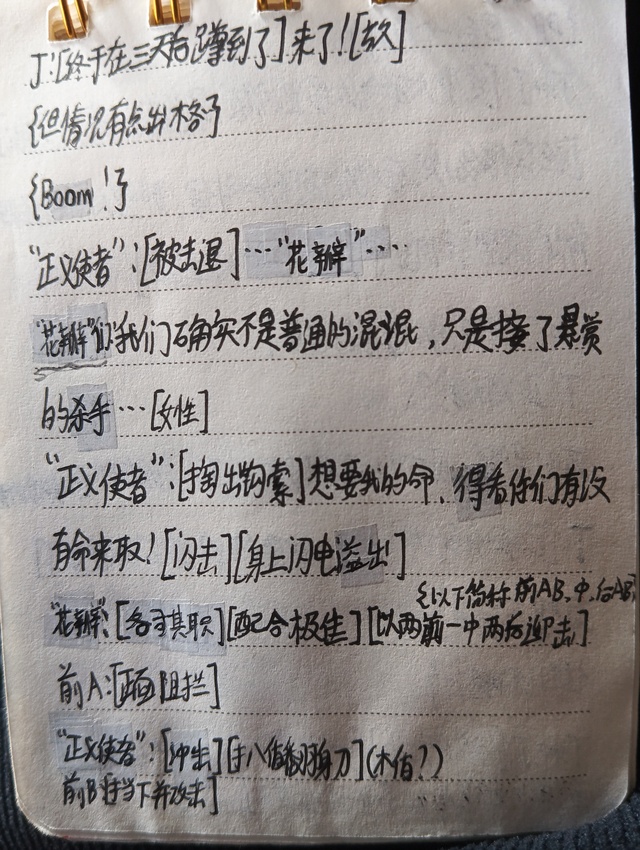 J:[终于在三天后蹲到了]来了！[故]
{但情况有点出格了
{Boom！}
“正义使者”:[被击退]…“花瓣”….
“花瓣”们:我们确实不是普通的混混，只是接了悬赏
的杀手…[女性]
“正义使者”:[掏出钩索]想要我的命、得看你们有没
有命来取！[闪击][身上闪电溢出]
{以下简称前AB、中、后AB}
“花瓣”:[各司其职][配合极佳][以两前一中两后迎击]
前A:[正面阻拦]
“正义使者”:[冲击][翻身刀](木值？)
前B:[挡下并攻击]